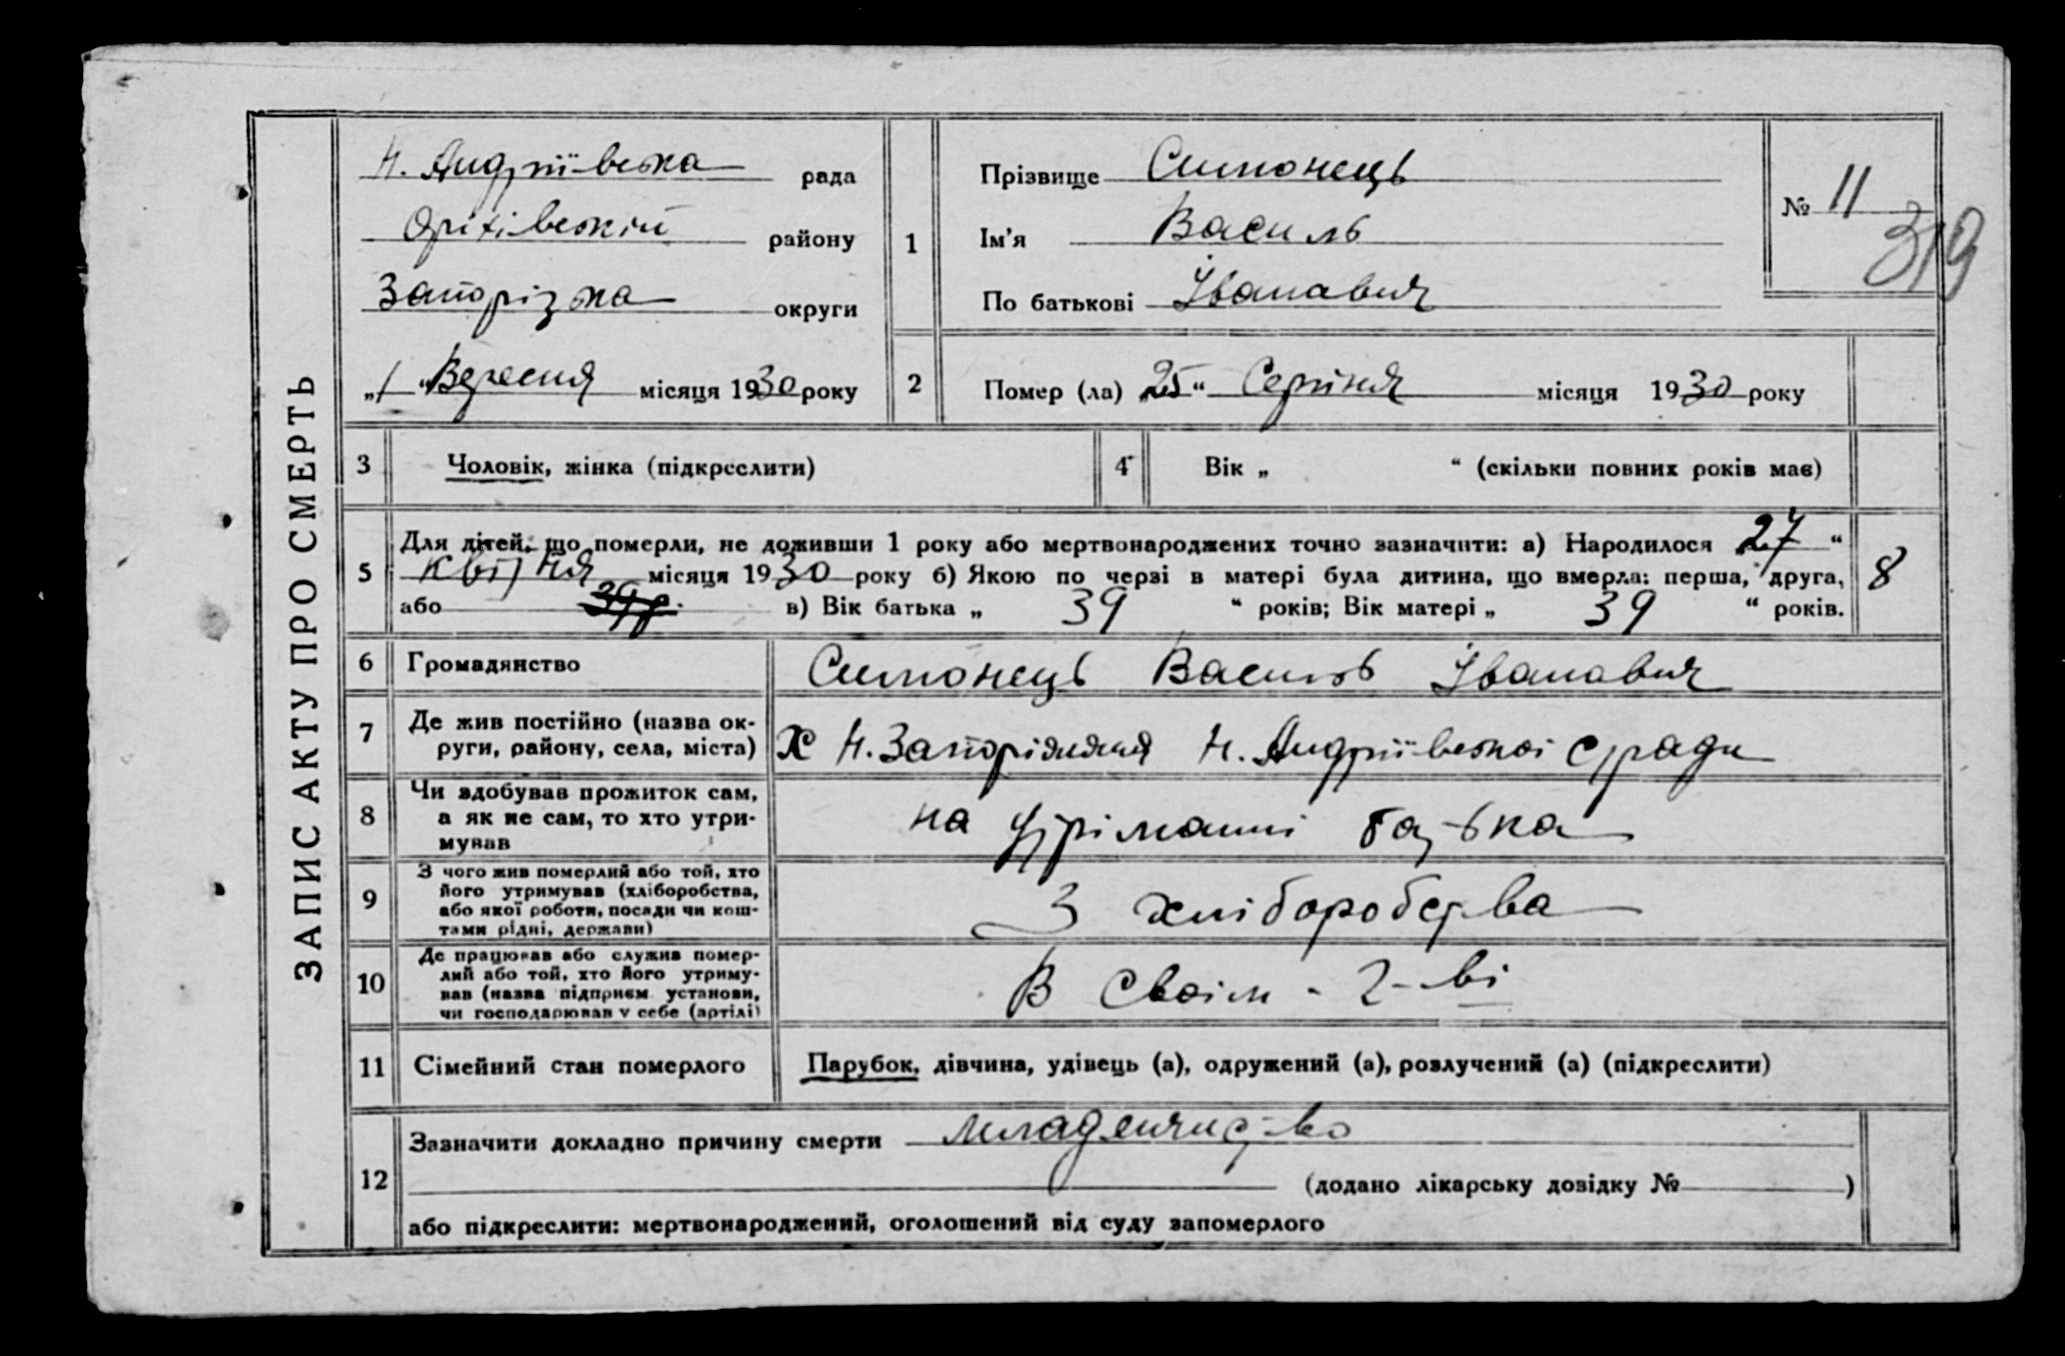 ЗАПИС АКТУ ПРО СМЕРТЬ
Н. Андріївська рада
Оріхівській району
Запорізька округи
„1“ Вересня місяця 1930 року
1
Прізвище Симонець
Ім'я Василь
По батькові Іванавич
№ 11
319
2
Помер (ла) „25“ Серпня місяця 1930 року
3
Чоловік, жінка (підкреслити)
4
Вік „ “ (скільки повних років має)
5
Для дітей, що померли, не доживши 1 року або мертвонароджених точно зазначити: а) Народилося 27 “
Квітня місяця 1930 року б) Якою по черзі в матері була дитина, що вмерла: перша, друга,
або 39 р. в) Вік батька „ 39 “ років; Вік матері „ 39 “ років.
8
6
Громадянство
Симонець Василь Іванавич
7
Де жив постійно (назва ок-
руги, району, села, міста)
х Н. Запоріжжя Н. Андріївської с/ради
8
Чи здобував прожиток сам,
а як не сам, то хто утри-
мував
на утріманні батька
9
З чого жив померлий або той, хто
його утримував (хліборобства,
або якої роботи, посади чи кош-
тами рідні, держави)
З хліборобства
10
Де працював або служив помер-
лий або той, хто його утриму-
вав (назва підприєм. установи,
чи господарював у себе (артілі)
В своім - г-ві
11
Сімейний стан померлого
Парубок, дівчина, удівець (а), одружений (а), розлучений (а) (підкреслити)
12
Зазначити докладно причину смерти младенчиство
(додано лікарську довідку № )
або підкреслити: мертвонароджений, оголошений від суду запомерлого